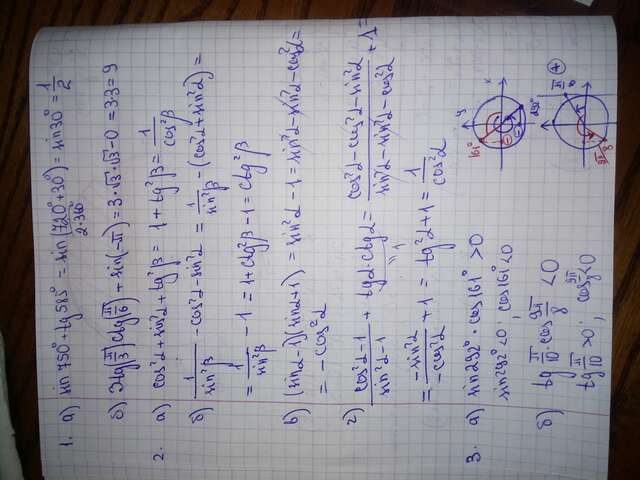 1. а) sin 750° + tg 585° = sin (720° + 30°) = sin 30° = 1/2
2·360°
б) 3tg(π/3)ctg(π/6) + sin(-π) = 3·√3·√3 - 0 = 3·3 = 9
2. а) cos²α + sin²α + tg²β = 1 + tg²β = 1/cos²β
б) 1/sin²β - cos²α - sin²α = 1/sin²β - (cos²α + sin²α) =
= 1/sin²β - 1 = 1 + ctg²β - 1 = ctg²β
в) (sinα - 1)(sinα + 1) = sin²α - 1 = sin²α - sin²α - cos²α =
= - cos²α
г) (cos²α - 1)/(sin²α - 1) + tgα·ctgα = (cos²α - cos²α - sin²α)/(sin²α - sin²α - cos²α) + 1 =
1
= -sin²α/-cos²α + 1 = tg²α + 1 = 1/cos²α
3. а) sin 292° · cos 161° > 0
sin 292° < 0, cos 161° < 0
y
x
161°
292°
б) tg π/10 · cos 9π/8 < 0
tg π/10 > 0, cos 9π/8 < 0
9π/8
π/10
+